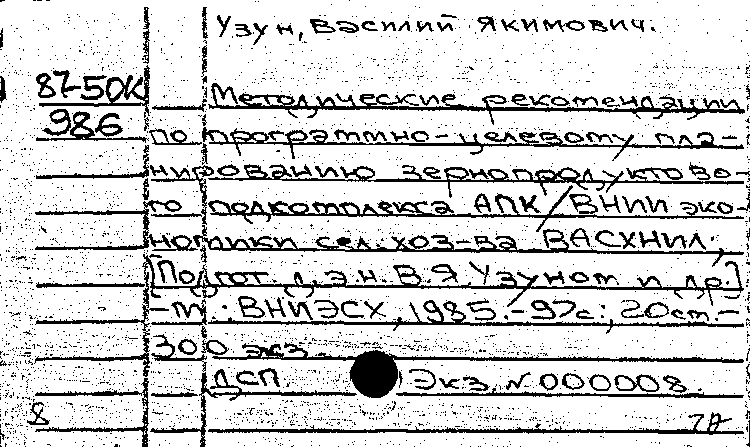 Узун, Василий Якимович.
87-50К
986
Методические рекомендации
по программно-целевому пла-
нированию зернопродуктово-
го подкомплекса АПК/ВНИИ эко-
номики сел. хоз-ва ВАСХНИЛ;
[Подгот. д.э.н. В.Я. Узуном и др.]
-М.: ВНИЭСХ, 1985.-97с.; 20см.-
300 экз.
ДСП Экз. N 000008.
8